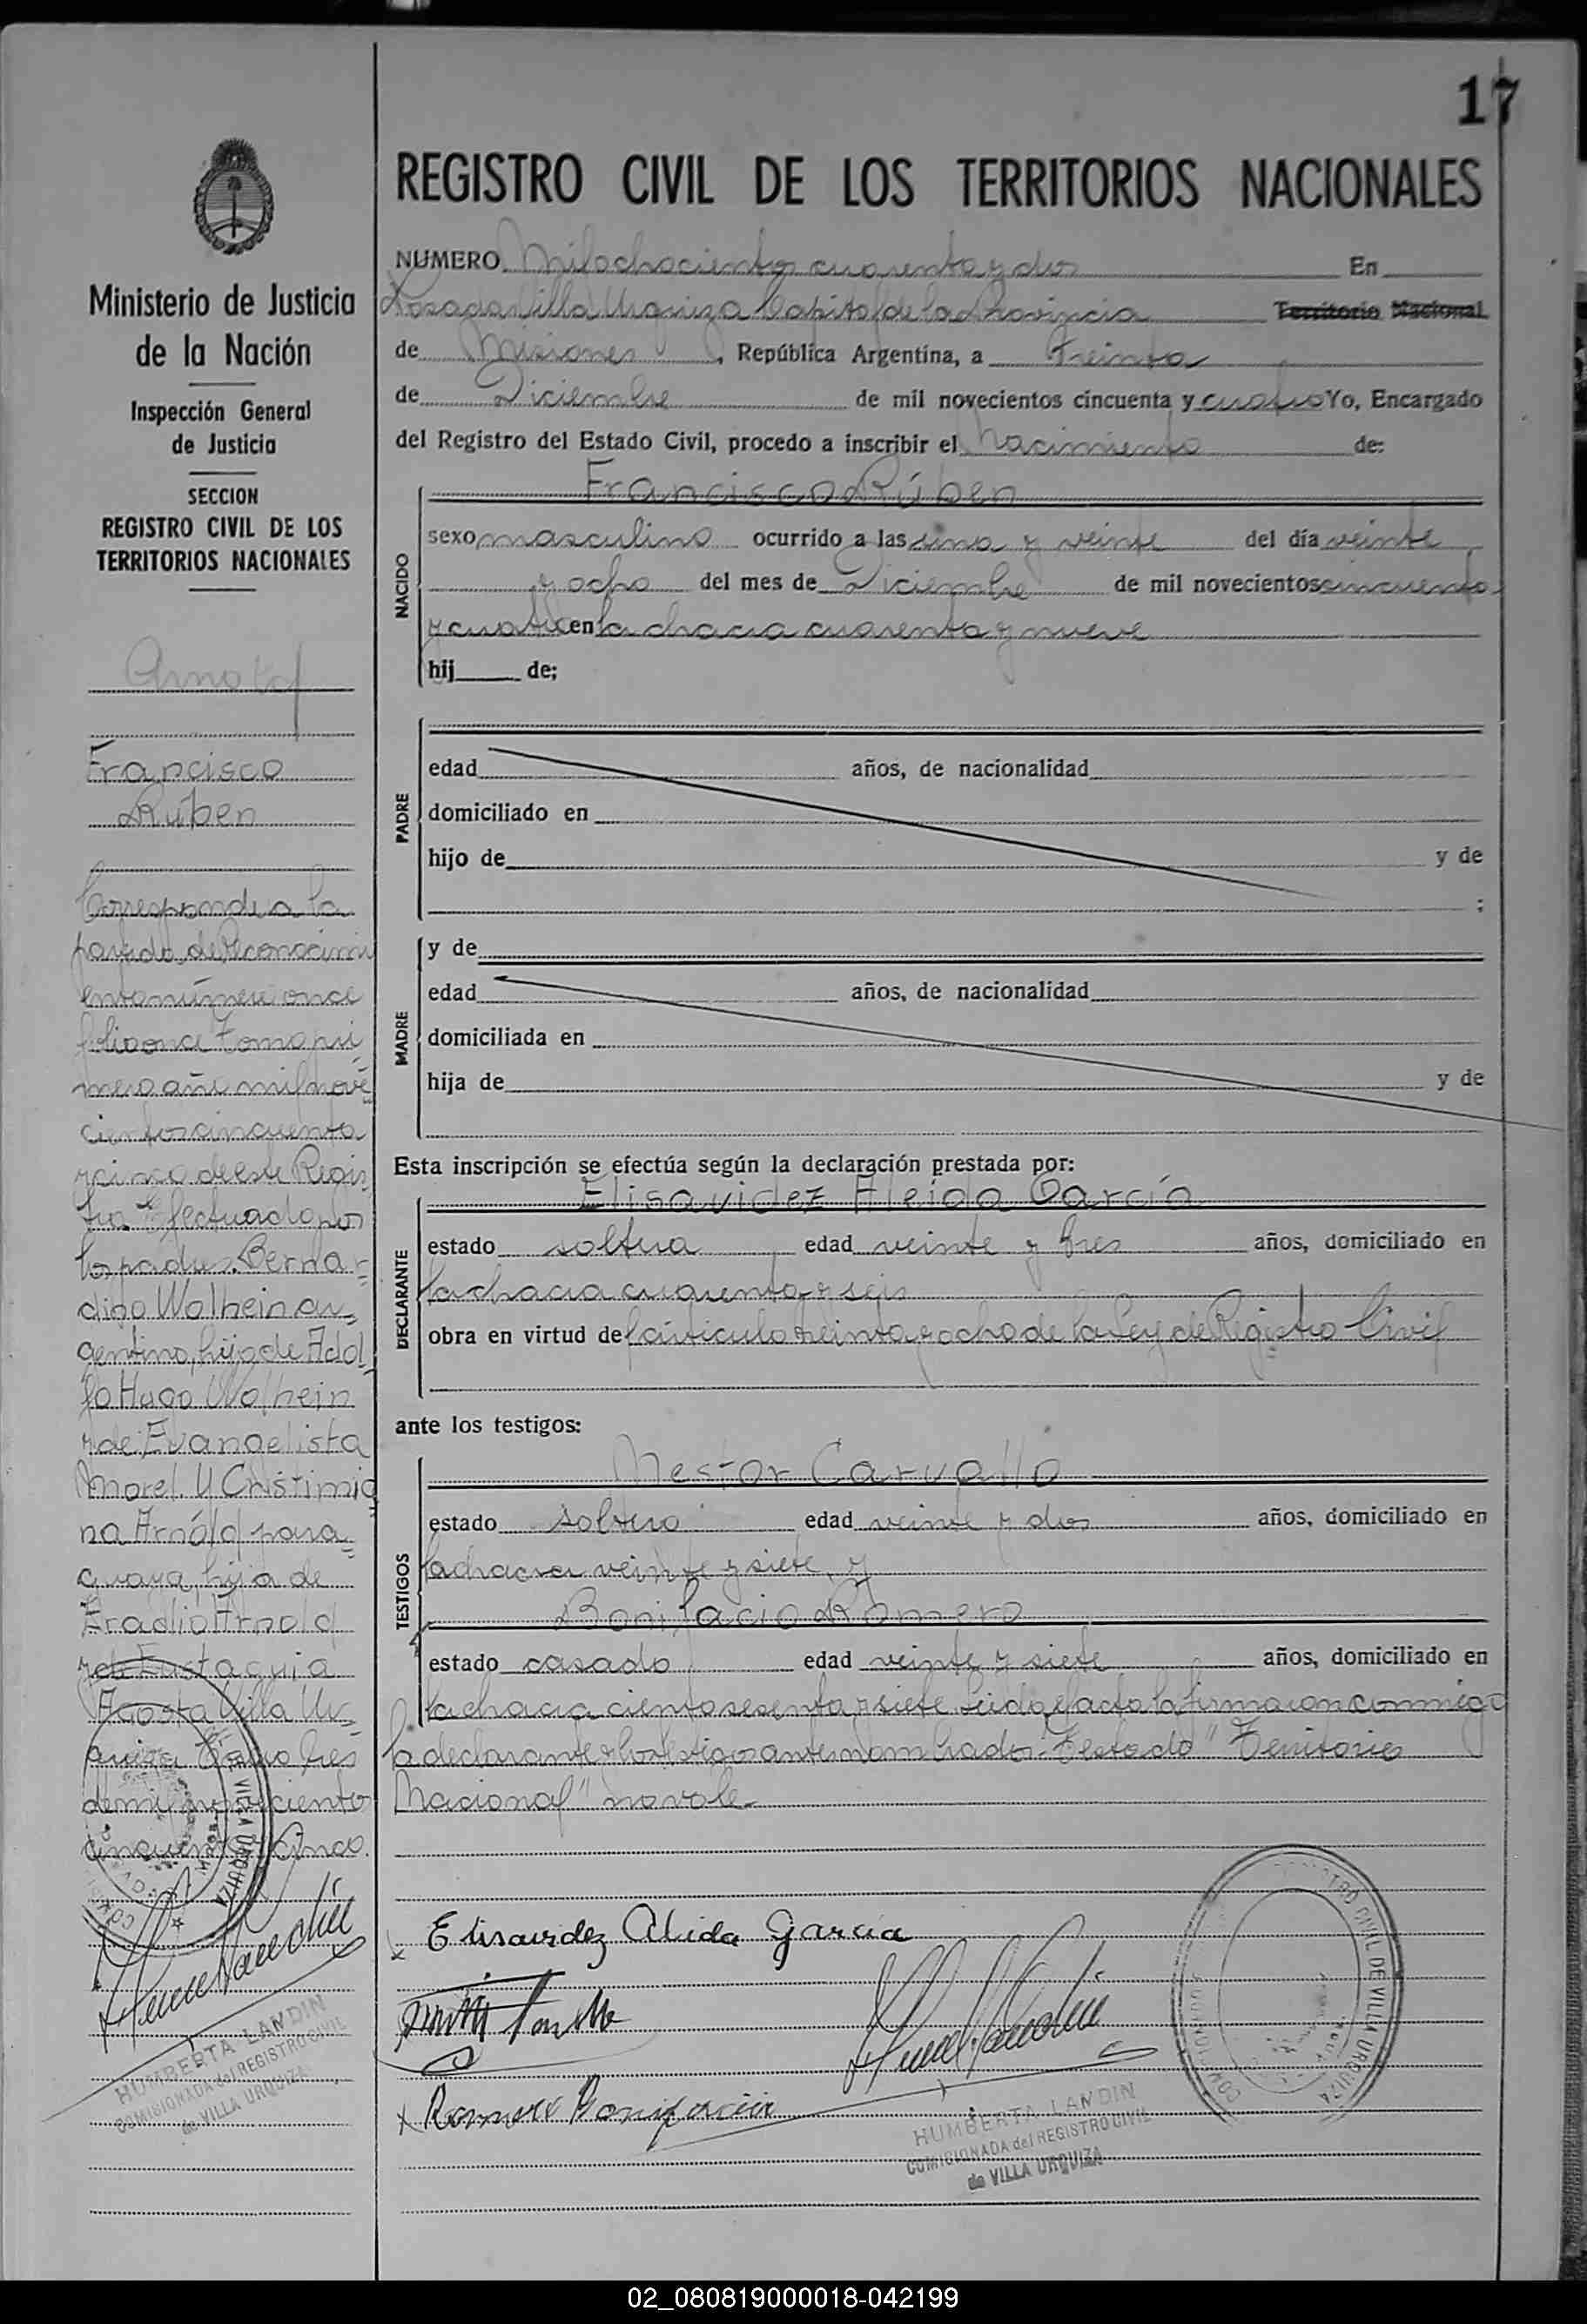 17
REGISTRO CIVIL DE LOS TERRITORIOS NACIONALES
Ministerio de Justicia
de la Nación
Inspección General
de Justicia
SECCION
REGISTRO CIVIL DE LOS
TERRITORIOS NACIONALES
Arnold
Francisco
Rúben
Corresponde a la
partida de Reconocimi
ento número once
folio once Tomo pri
mero año mil nove
cientos cincuenta
y cinco de este Regis
tro Efectuado por
los padres. Bernar
dino Wolhein ar
gentino, hijo de Adol
fo Hugo Wolhein
y de Evangelista
Morel. Y Cristimia
na Arnóld para
guaya, hija de
Eradio Arnold
y de Eustaquia
Acosta Villa Ur
quiza Enero tres
de mil novecientos
cincuenta y cinco.
HUMBERTA LANDIN
COMISIONADA del REGISTRO CIVIL
de VILLA URQUIZA
NUMERO Mil ochociento cuarenta y dos En
Posadas Villa Urquiza Capital de la Provincia Territorio Nacional
de Misiones, República Argentina, a Treinta
de Diciembre de mil novecientos cincuenta y cuatro Yo, Encargado
del Registro del Estado Civil, procedo a inscribir el Nacimiento de:
NACIDO
Francisco Rúben
sexo masculino ocurrido a las una y veinte del día veinte
y ocho del mes de Diciembre de mil novecientos cincuenta
y cuatro en la chacra cuarenta y nueve
hij de;
PADRE
edad años, de nacionalidad
domiciliado en
hijo de y de
;
MADRE
y de
edad años, de nacionalidad
domiciliada en
hija de y de
Esta inscripción se efectúa según la declaración prestada por:
DECLARANTE
Elisavidez Aleida García
estado soltera edad veinte y tres años, domiciliado en
la chacra cuarenta y seis
obra en virtud del artículo treinta y ocho de la Ley de Registro Civil
ante los testigos:
TESTIGOS
Nestor Carvallo
estado soltero edad veinte y dos años, domiciliado en
la chacra veinte y siete, y
Bonifacio Romero
estado casado edad veinte y siete años, domiciliado en
la chacra ciento sesenta y siete. Leida el acta la firmaron conmigo
la declarante y los testigos antes nombrados. Testado "Territorio
Nacional" no vale.
Elisavidez Alida García
Romero Bonifacio
HUMBERTA LANDIN
COMISIONADA del REGISTRO CIVIL
de VILLA URQUIZA
REGISTRO CIVIL DE VILLA URQUIZA
02_080819000018-042199